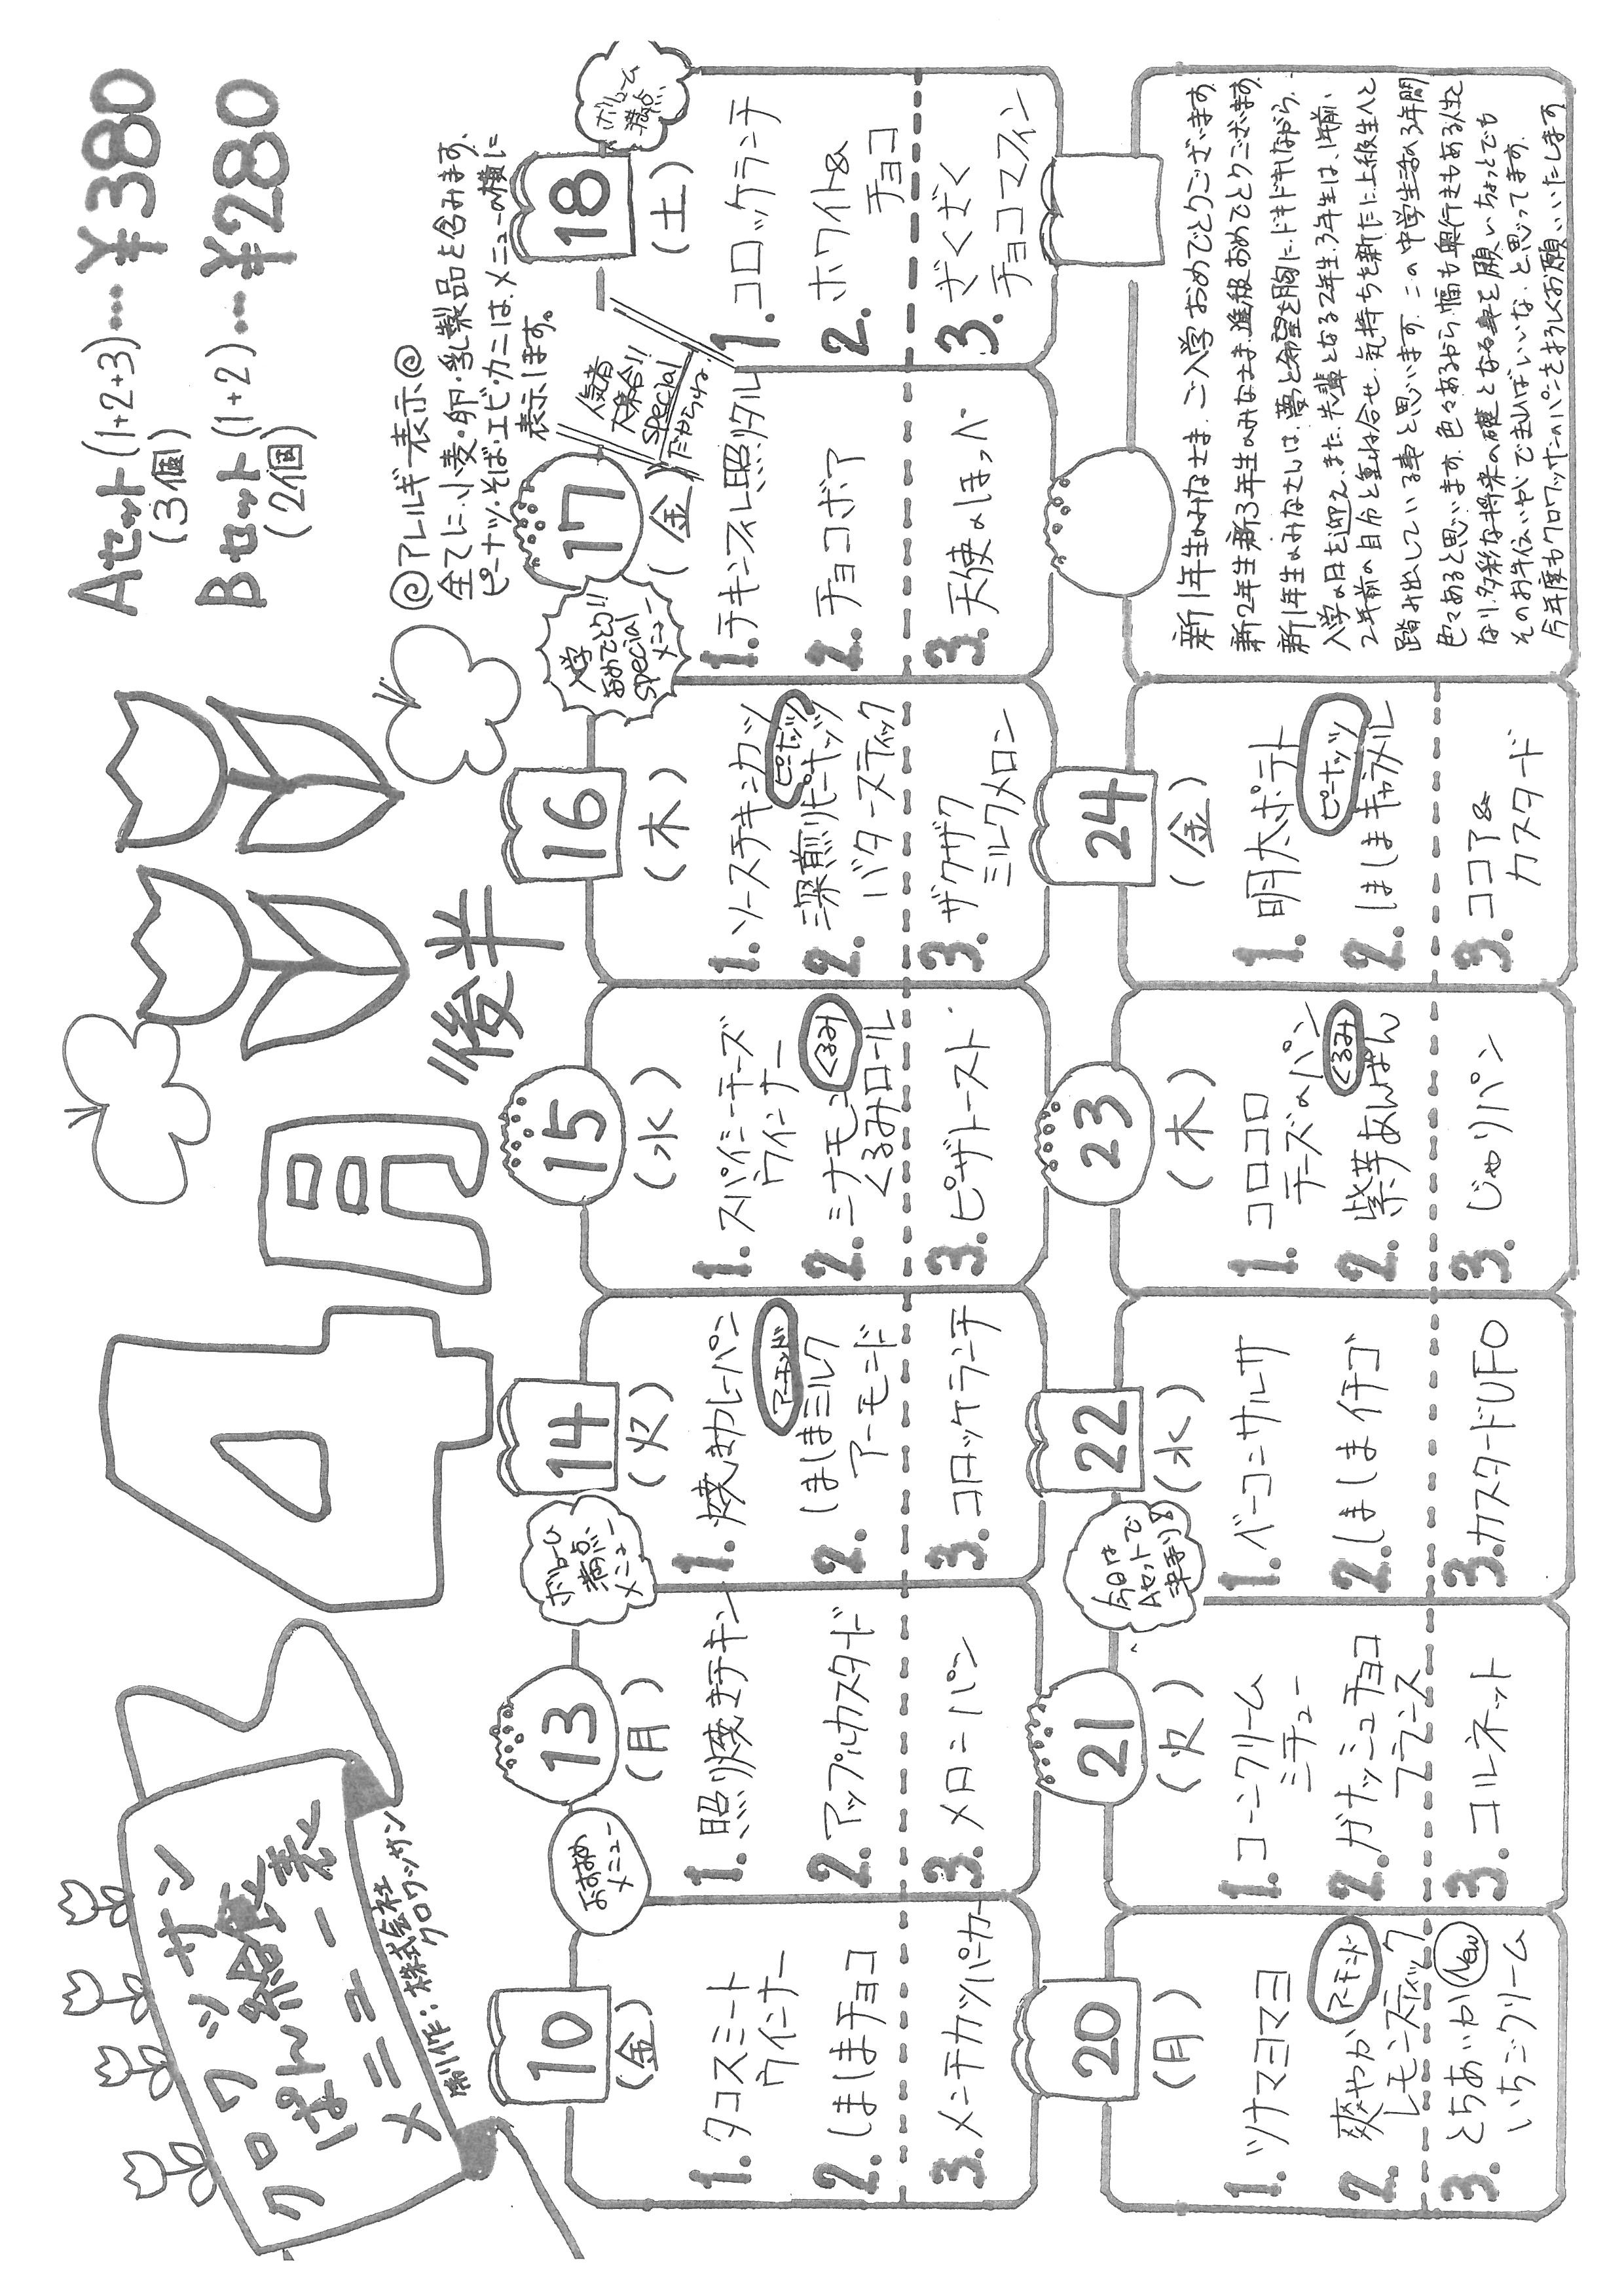 クロワッサン
ぱん給食製
メニュー表
制作：株式会社
クロワッサン
4月
後半
Aセット(1+2+3)…¥380
(3個)
Bセット(1+2)…¥280
(2個)
◎アレルギー表示◎
全てに、小麦・卵・乳製品を含みます。
ピーナッツ・そば・エビ・カニは、メニューの横に
表示します。
10
(金)
1. タコスミート
ウインナー
2. しましまチョコ
3. メンチカツバーガー
おすすめ
メニュー
13
(月)
1. 照り焼きチキン
2. アップルカスタード
3. メロンパン
ボリューム
満点
メニュー
14
(火)
1. 焼きカレーパン
アーモンド
2. しましまミルク
アーモンド
3. コロッケランチ
15
(水)
1. スパイシーチーズ
ウインナー
くるみ
2. シナモン
くるみロール
3. ピザトースト
16
(木)
1. ソースチキンカツ
ピーナッツ
2. 深煎りピーナッツ
バタースティック
3. ザクザク
ミルクメロン
入学
おめでとう!!
special
メニュー
17
(金)
人気者
大集合!!
special
だからね。
1. チキンフィレ照りタル
2. チョコボア
3. 天使のほっぺ
18
(土)
ボリューム
満点
1. コロッケランチ
2. ホワイト&
チョコ
3. ざくざく
チョコマフィン
20
(月)
1. ツナマヨマヨ
アーモンド
2. 爽やか
レモンスティック
New
3. とちあいか
いちごクリーム
21
(火)
1. コーンクリーム
シチュー
2. ガナッシュチョコ
フランス
3. コルネット
今日は
Aセットで
22
(水)
1. ベーコンサルサ
2. しましまイチゴ
3. カスタードUFO
23
(木)
1. コロコロ
チーズのパン
くるみ
2. 紫芋あんぱん
3. じゃりパン
24
(金)
1. 明太ポテト
ピーナッツ
2. しましまキャラメル
3. ココア&
カスタード
新1年生のみなさま、ご入学おめでとうございます。
新2年生新3年生のみなさま、進級おめでとうございます。
新1年生のみなさんは、夢と希望を胸に、ドキドキしながら、
入学の日を迎え、また、先輩となる2年生、3年生は、1年前、
2年前の自分と重ね合せ、気持ちを新たに上級生へと
踏み出している事と思います。この中学生活の3年間
色々あると思います。色々あるから幅も奥行きもある人生と
なり、多彩な将来の礎となる事を願い、ちょっとでも
そのお手伝いができればいいな、と思ってます。
今年度もクロワッサンのパンをよろしくお願いいたします